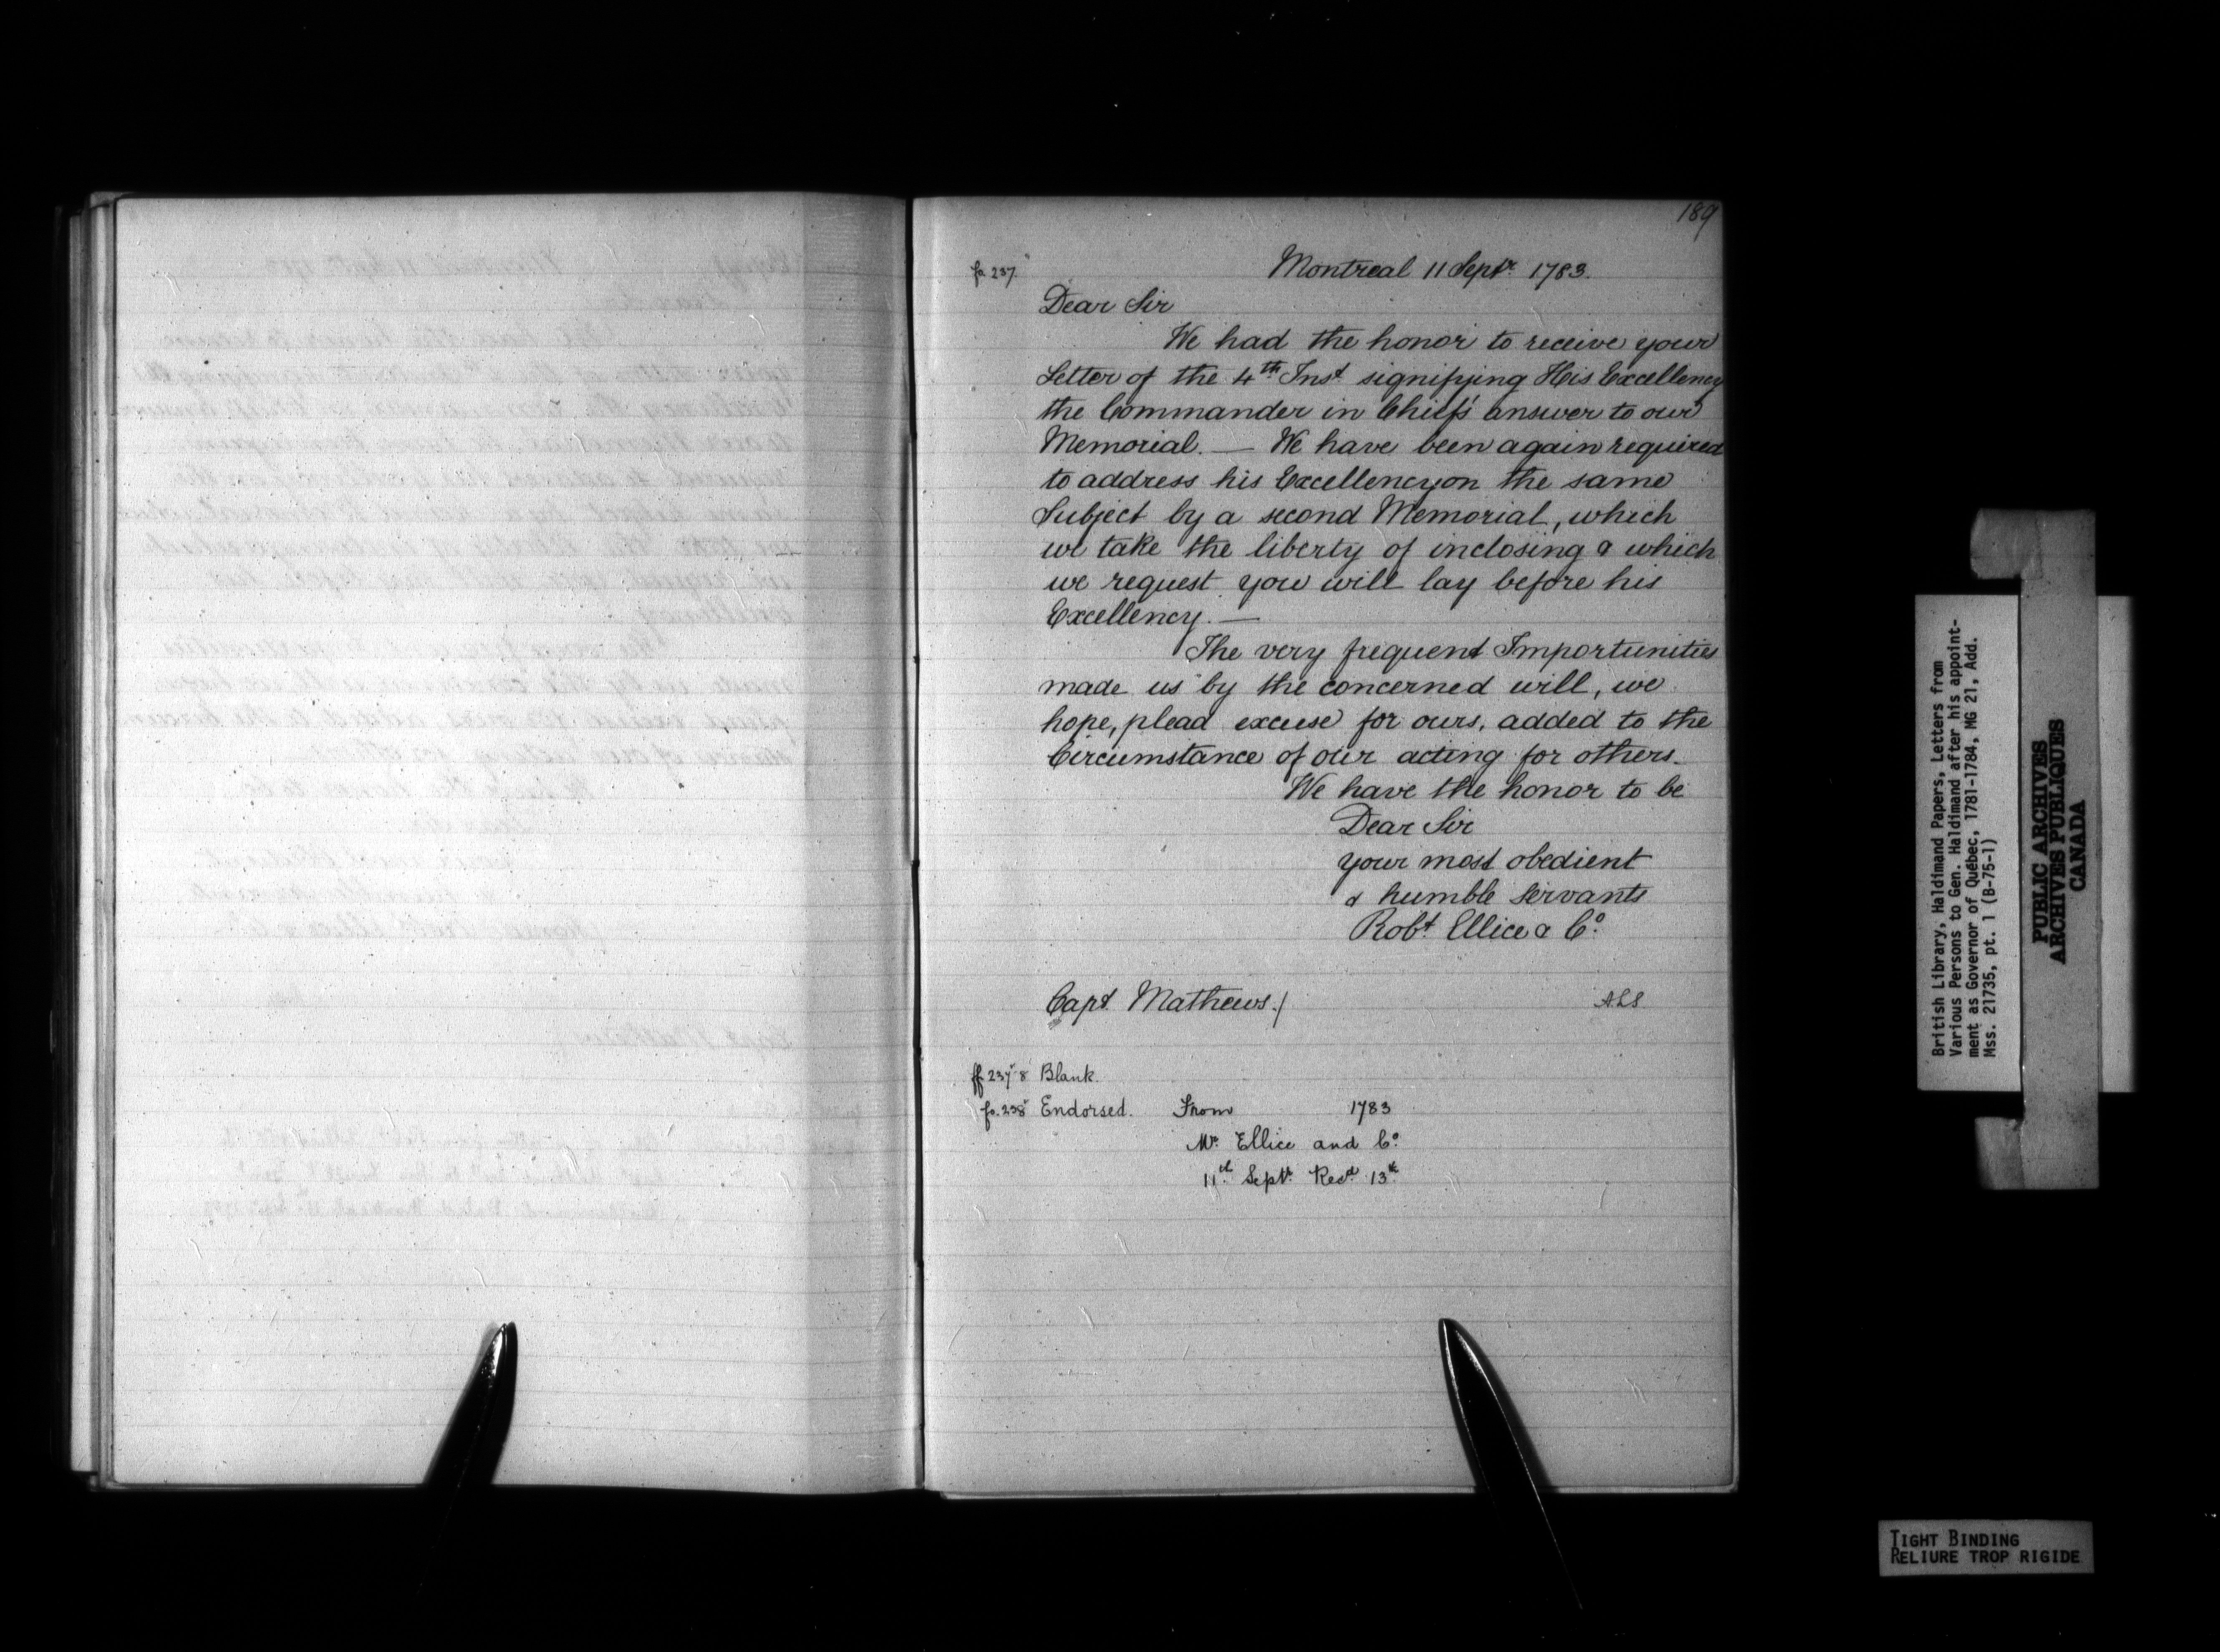 189
fo. 237.
Montreal 11 Septr. 1783.
Dear Sir
We had the honor to receive your
Letter of the 4th Inst signifying His Excellency
the Commander in Chief's answer to our
Memorial. — We have been again required
to address his Excellency on the same
Subject by a second Memorial, which
we take the liberty of inclosing & which
we request you will lay before his
Excellency. —
The very frequent Importunities
made us by the concerned will, we
hope, plead excuse for ours, added to the
Circumstance of our acting for others.
We have the honor to be
Dear Sir
your most obedient
& humble servants
Robt. Ellice & Co.
Capt. Mathews./
A.L.S.
ff 237v-8 Blank.
fo. 238v Endorsed. From 1783
Mr. Ellice and Co.
11th Septr. Recd. 13th
British Library, Haldimand Papers, Letters from
Various Persons to Gen. Haldimand after his appoint-
ment as Governor of Québec, 1781-1784, MG 21, Add.
Mss. 21735, pt. 1 (B-75-1)
PUBLIC ARCHIVES
ARCHIVES PUBLIQUES
CANADA
TIGHT BINDING
RELIURE TROP RIGIDE